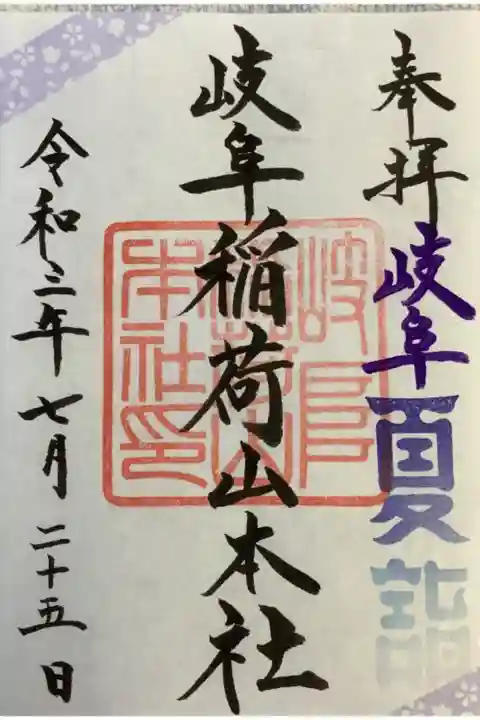 奉拝岐阜夏詣
岐阜稲荷山本社
岐阜稲荷山本社印
令和三年七月二十五日